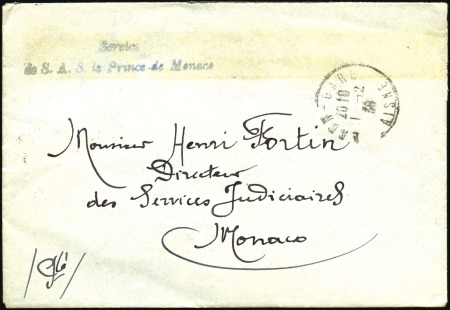 Service
de S. A. S. le Prince de Monaco
GARE
AISNE
2010
1 -12
38
Monsieur Henri Fortin
Directeur
des Services Judiciaires
Monaco